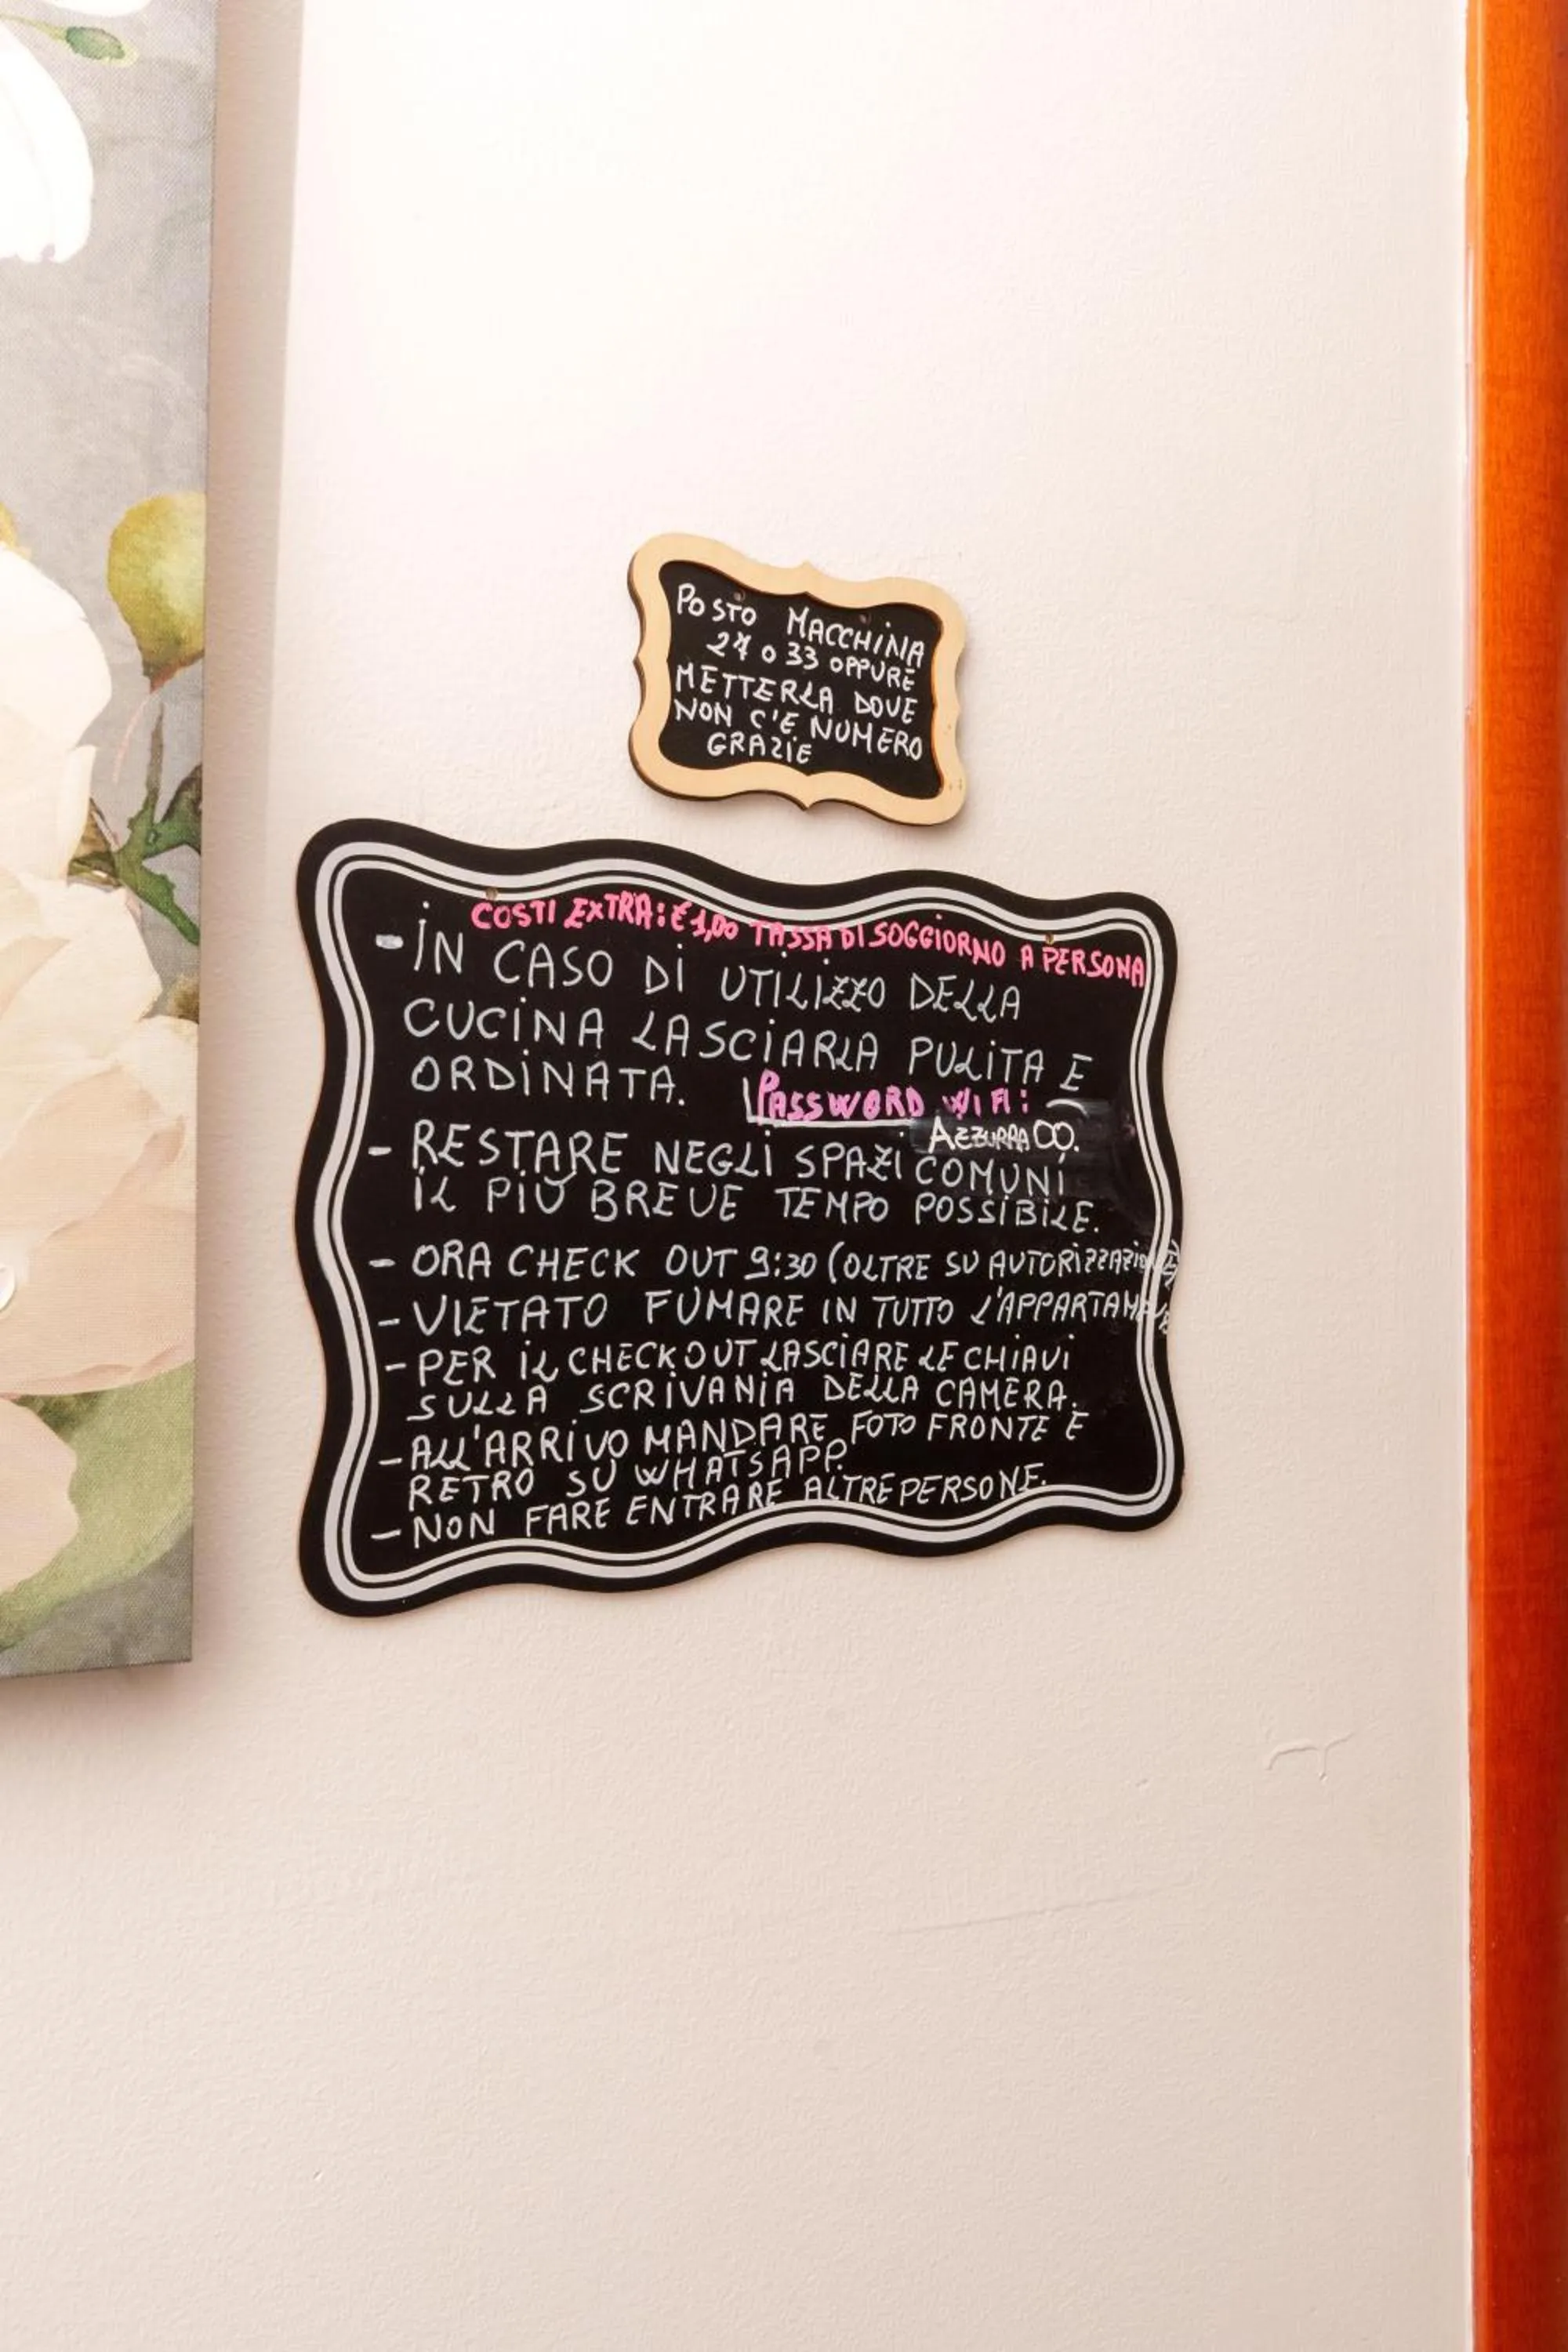 POSTO MACCHINA
27 O 33 OPPURE
METTERLA DOVE
NON C'E NUMERO
GRAZIE
COSTI EXTRA: € 1,00 TASSA DI SOGGIORNO A PERSONA
- IN CASO DI UTILIZZO DELLA
CUCINA LASCIARLA PULITA E
ORDINATA.
PASSWORD WIFI:
AZZURRA00.
- RESTARE NEGLI SPAZI COMUNI
IL PIÙ BREVE TEMPO POSSIBILE.
- ORA CHECK OUT 9:30 (OLTRE SU AUTORIZZAZIONE)
- VIETATO FUMARE IN TUTTO
- PER IL CHECKOUT LASCIARE LE CHIAVI
SULLA SCRIVANIA DELLA CAMERA.
- ALL'ARRIVO MANDARE FOTO FRONTE E
RETRO SU WHATSAPP.
- NON FARE ENTRARE ALTRE PERSONE.